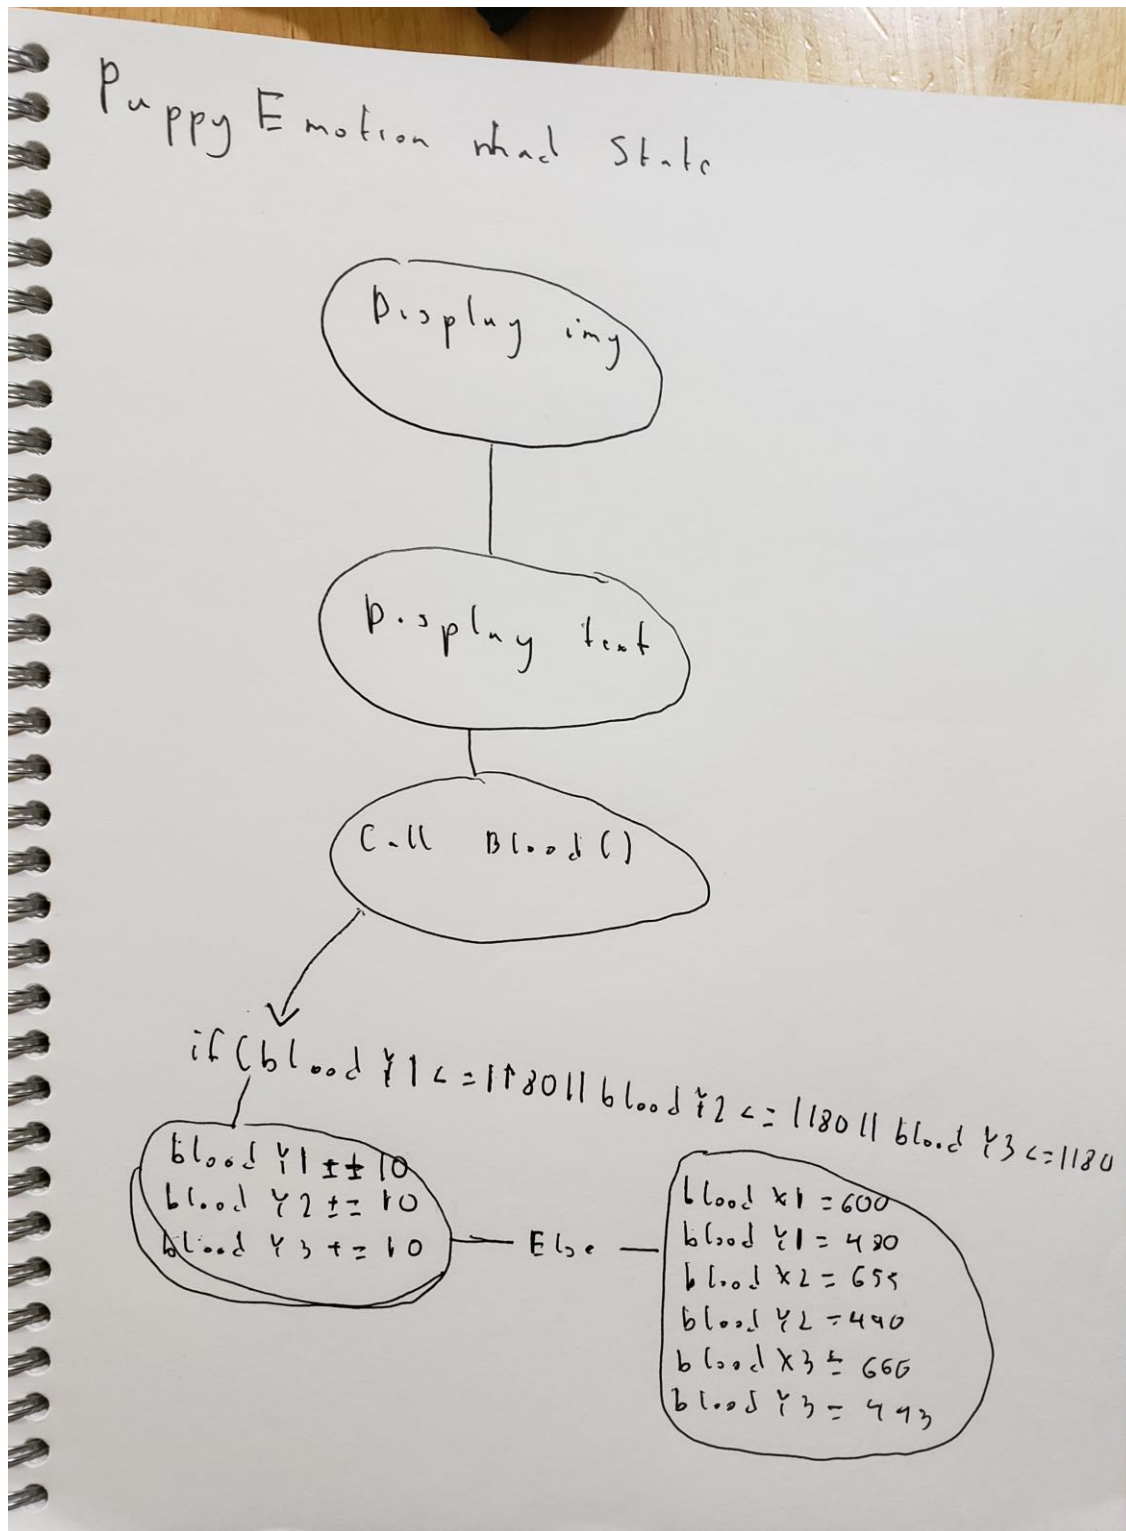 Puppy Emotion mad State
Display img
Display text
Call Blood()
if(blood Y1<=1180||blood Y2<=1180||blood Y3<=1180
blood Y1 += 10
blood Y2 += 10
blood Y3 += 10
Else
blood X1 = 600
blood Y1 = 480
blood X2 = 655
blood Y2 = 490
blood X3 = 666
blood Y3 = 493